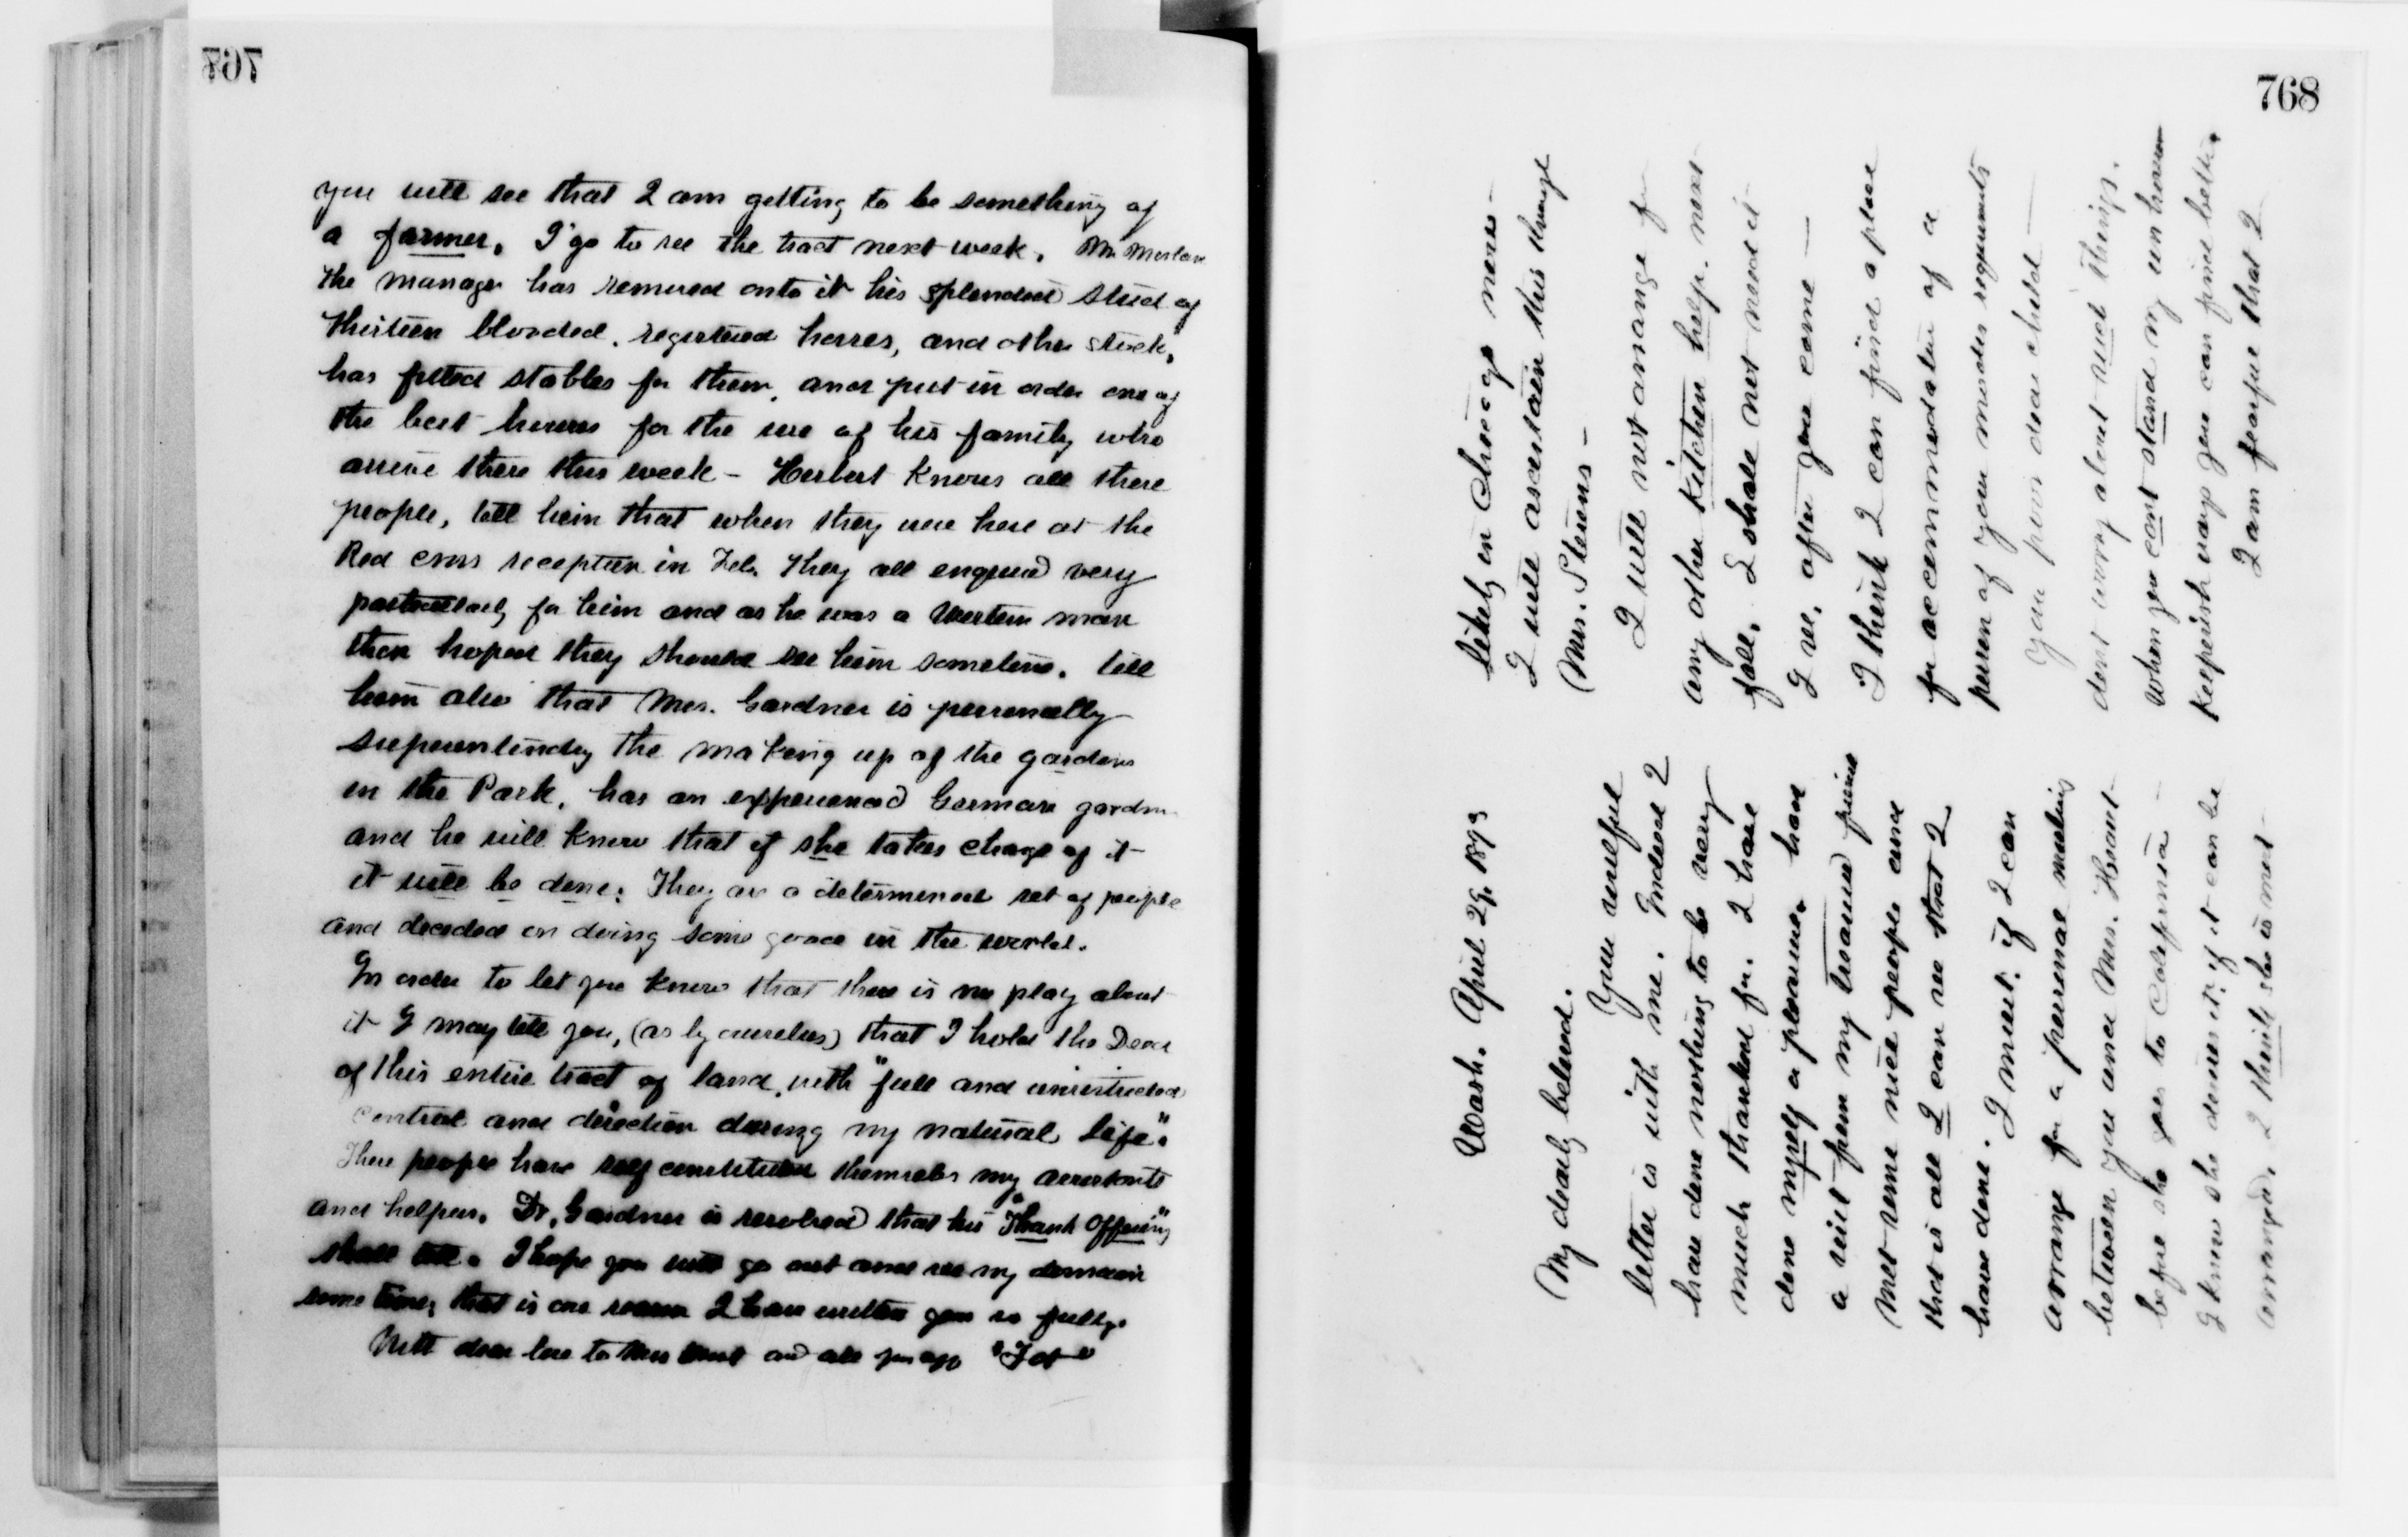 767
you will see that I am getting to be something of
a farmer. I go to see the tract next week. Mr. Morlan
the manager has removed onto it his splendid stud of
thirteen blooded, registered horses, and other stock,
has fitted stables for them, and put in order one of
the best houses for the use of his family who
arrive there this week - Herbert knows all these
people, tell him that when they were here at the
Red cross reception in Feb. they all enquired very
particularly for him and as he was a Western man
then hoped they should see him sometime. tell
him also that Mrs. Gardner is personally
superintending the making up of the gardens
in the Park, has an experienced German gardner
and he will know that if she takes charge of it
it will be done: They are a determined set of people
and decided on doing some good in the world.
In order to let you know that there is no play about
it I may tell you, (as by ourselves) that I hold the Deed
of this entire tract of land, with "full and unrestricted
control and direction during my natural life".
These people have self constituted themselves my assistants
and helpers. Dr. Gardner is resolved that his "Thank Offering"
shall tell. I hope you will go out and see my domain
some time, that is one reason I have written you so fully.
With dear love to and all you
768
Wash. April 29, 1893
My dearly beloved.
Your
letter is with me. Indeed I
have done nothing to be very
much thanked for. I have
done myself a pleasure. have
a visit from my treasured friend
met some nice people and
that is all I can see that I
have done. I must if I can
arrange for a personal meeting
between you and Mrs.
before she goes to California -
I know she desires it; if it can be
arranged. I think she is most
likely in Chicago now -
I will ascertain this through
Mrs. Stevens -
I will not arrange for
any other kitchen help. next
fall. I shall not need it
I see, after you come -
I think I can find a place
for accommodation of a
person of your modes requirements
Your poor dear child -
dont worry about such things.
when you cant stand my un
keeperish ways you can find better.
I am fearful that I